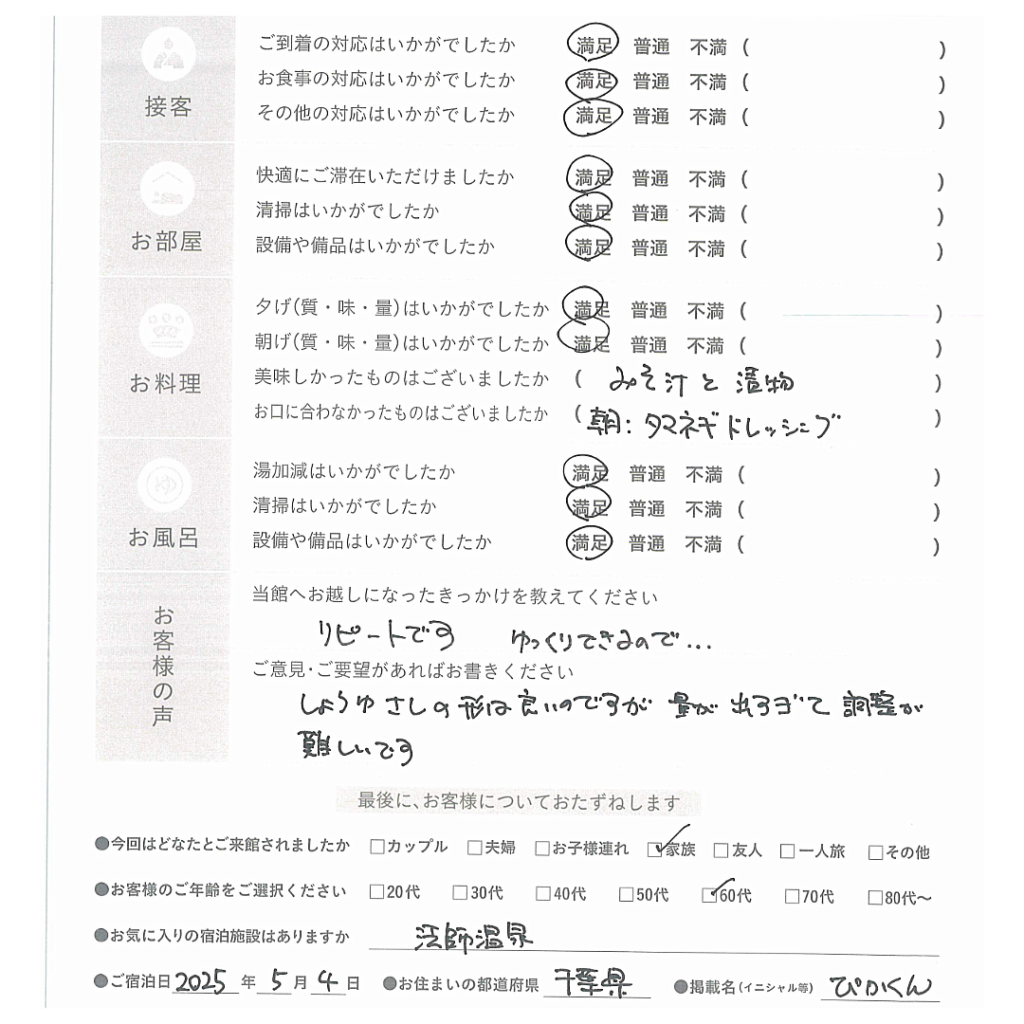 接客
ご到着の対応はいかがでしたか 満足 普通 不満 ( )
お食事の対応はいかがでしたか 満足 普通 不満 ( )
その他の対応はいかがでしたか 満足 普通 不満 ( )
お部屋
快適にご滞在いただけましたか 満足 普通 不満 ( )
清掃はいかがでしたか 満足 普通 不満 ( )
設備や備品はいかがでしたか 満足 普通 不満 ( )
お料理
夕げ(質・味・量)はいかがでしたか 満足 普通 不満 ( )
朝げ(質・味・量)はいかがでしたか 満足 普通 不満 ( )
美味しかったものはございましたか ( みそ汁と漬物 )
お口に合わなかったものはございましたか ( 朝:タマネギドレッシング )
お風呂
ゆ
湯加減はいかがでしたか 満足 普通 不満 ( )
清掃はいかがでしたか 満足 普通 不満 ( )
設備や備品はいかがでしたか 満足 普通 不満 ( )
お客様の声
当館へお越しになったきっかけを教えてください
リピートです ゆっくりできるので...
ご意見・ご要望があればお書きください
しょうゆさしの形は良いのですが 量が出すぎて調整が
難しいです
最後に、お客様についておたずねします
●今回はどなたとご来館されましたか □カップル □夫婦 □お子様連れ ☑家族 □友人 □一人旅 □その他
●お客様のご年齢をご選択ください □20代 □30代 □40代 □50代 ☑60代 □70代 □80代〜
●お気に入りの宿泊施設はありますか 法師温泉
●ご宿泊日 2025 年 5 月 4 日 ●お住まいの都道府県 千葉県 ●掲載名(イニシャル等) ぴかくん